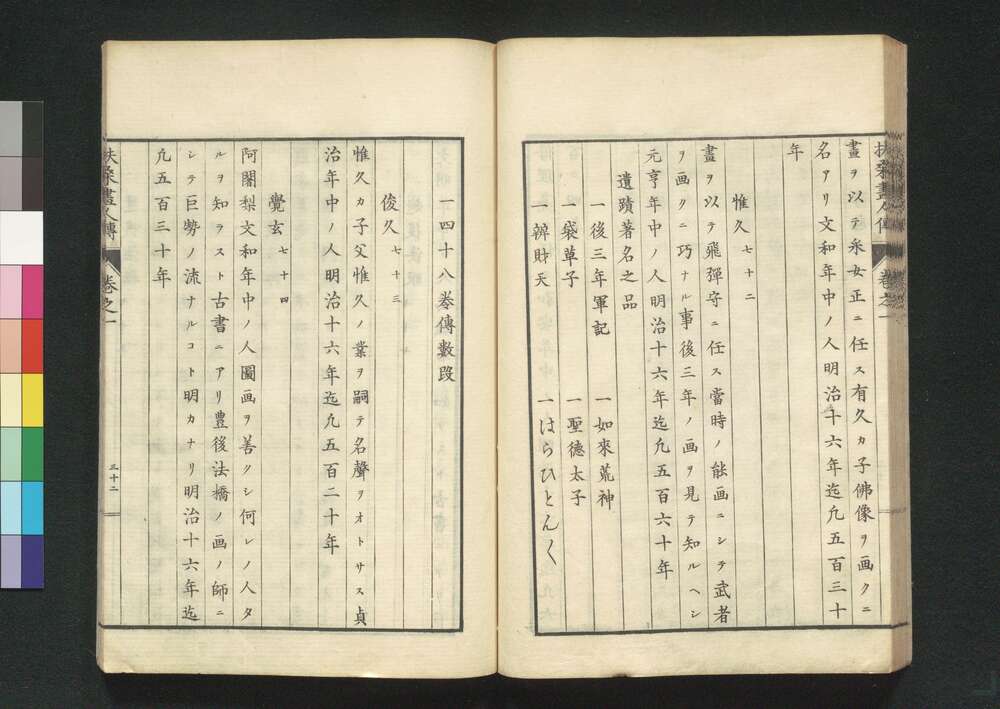 扶桑畫人傳 卷之一
畫ヲ以テ采女正ニ任ス有久カ子佛像ヲ画クニ
名アリ文和年中ノ人明治十六年迄凢五百三十
年
惟久 七十二
畫ヲ以テ飛彈守ニ任ス當時ノ能画ニシテ武者
ヲ画クニ巧ナル事後三年ノ画ヲ見テ知ルヘシ
元亨年中ノ人明治十六年迄凢五百六十年
遺蹟著名之品
一後三年軍記 一如來荒神
一袋草子 一聖德太子
一辨財天 一はらひとんく
一四十八巻傳數段
俊久 七十三
惟久カ子父惟久ノ業ヲ嗣テ名聲ヲオトサス貞
治年中ノ人明治十六年迄凢五百二十年
覺玄 七十四
阿闍梨文和年中ノ人圖画ヲ善クシ何レノ人タ
ルヲ知ラスト古書ニアリ豊後法橋ノ画ノ師ニ
シテ巨勢ノ流ナルコト明カナリ明治十六年迄
凢五百三十年
扶桑畫人傳 卷之一 三十二